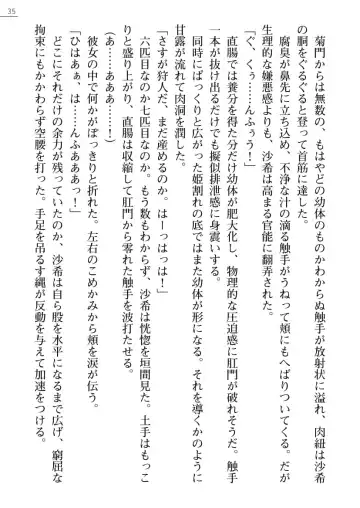 35
菊門からは無数の、もはやどの幼体のものかわからぬ触手が放射状に溢れ、肉紐は沙希
の胴をぐるぐると登って首筋に達した。
腐臭が鼻先に立ち込め、不浄な汁の滴る触手がうねって頬にもへばりついてくる。だが
生理的な嫌悪感よりも、沙希は高まる官能に翻弄された。
「ぐ、くぅ……んふぅう！」
直腸では養分を得た分だけ幼体が肥大化し、物理的な圧迫感に肛門が破れそうだ。触手
一本が抜け出るだけでも擬似排泄感に身震いする。
同時にぱっくりと広がった姫割れの底ではまた幼体が形になる。それを導くかのように
甘露が流れて肉洞を潤した。
「さすが狩人だ、まだ産めるのか。はーっはっは！」
六匹目なのか七匹目なのか。もう数もわからず、沙希は恍惚を垣間見た。土手はもっこ
りと盛り上がり、直腸は収縮して肛門から零れた触手を波打たせる。
(あ……ああぁ……っ！)
彼女の中で何かがぽっきりと折れた。左右のこめかみから頬を涙が伝う。
「ひはあぁ、は……んふああああっ！」
どこにそれだけの余力が残っていたのか、沙希は自ら股を水平になるまで広げ、窮屈な
拘束にもかかわらず空腰を打った。手足を吊るす縄が反動を与えて加速をつける。